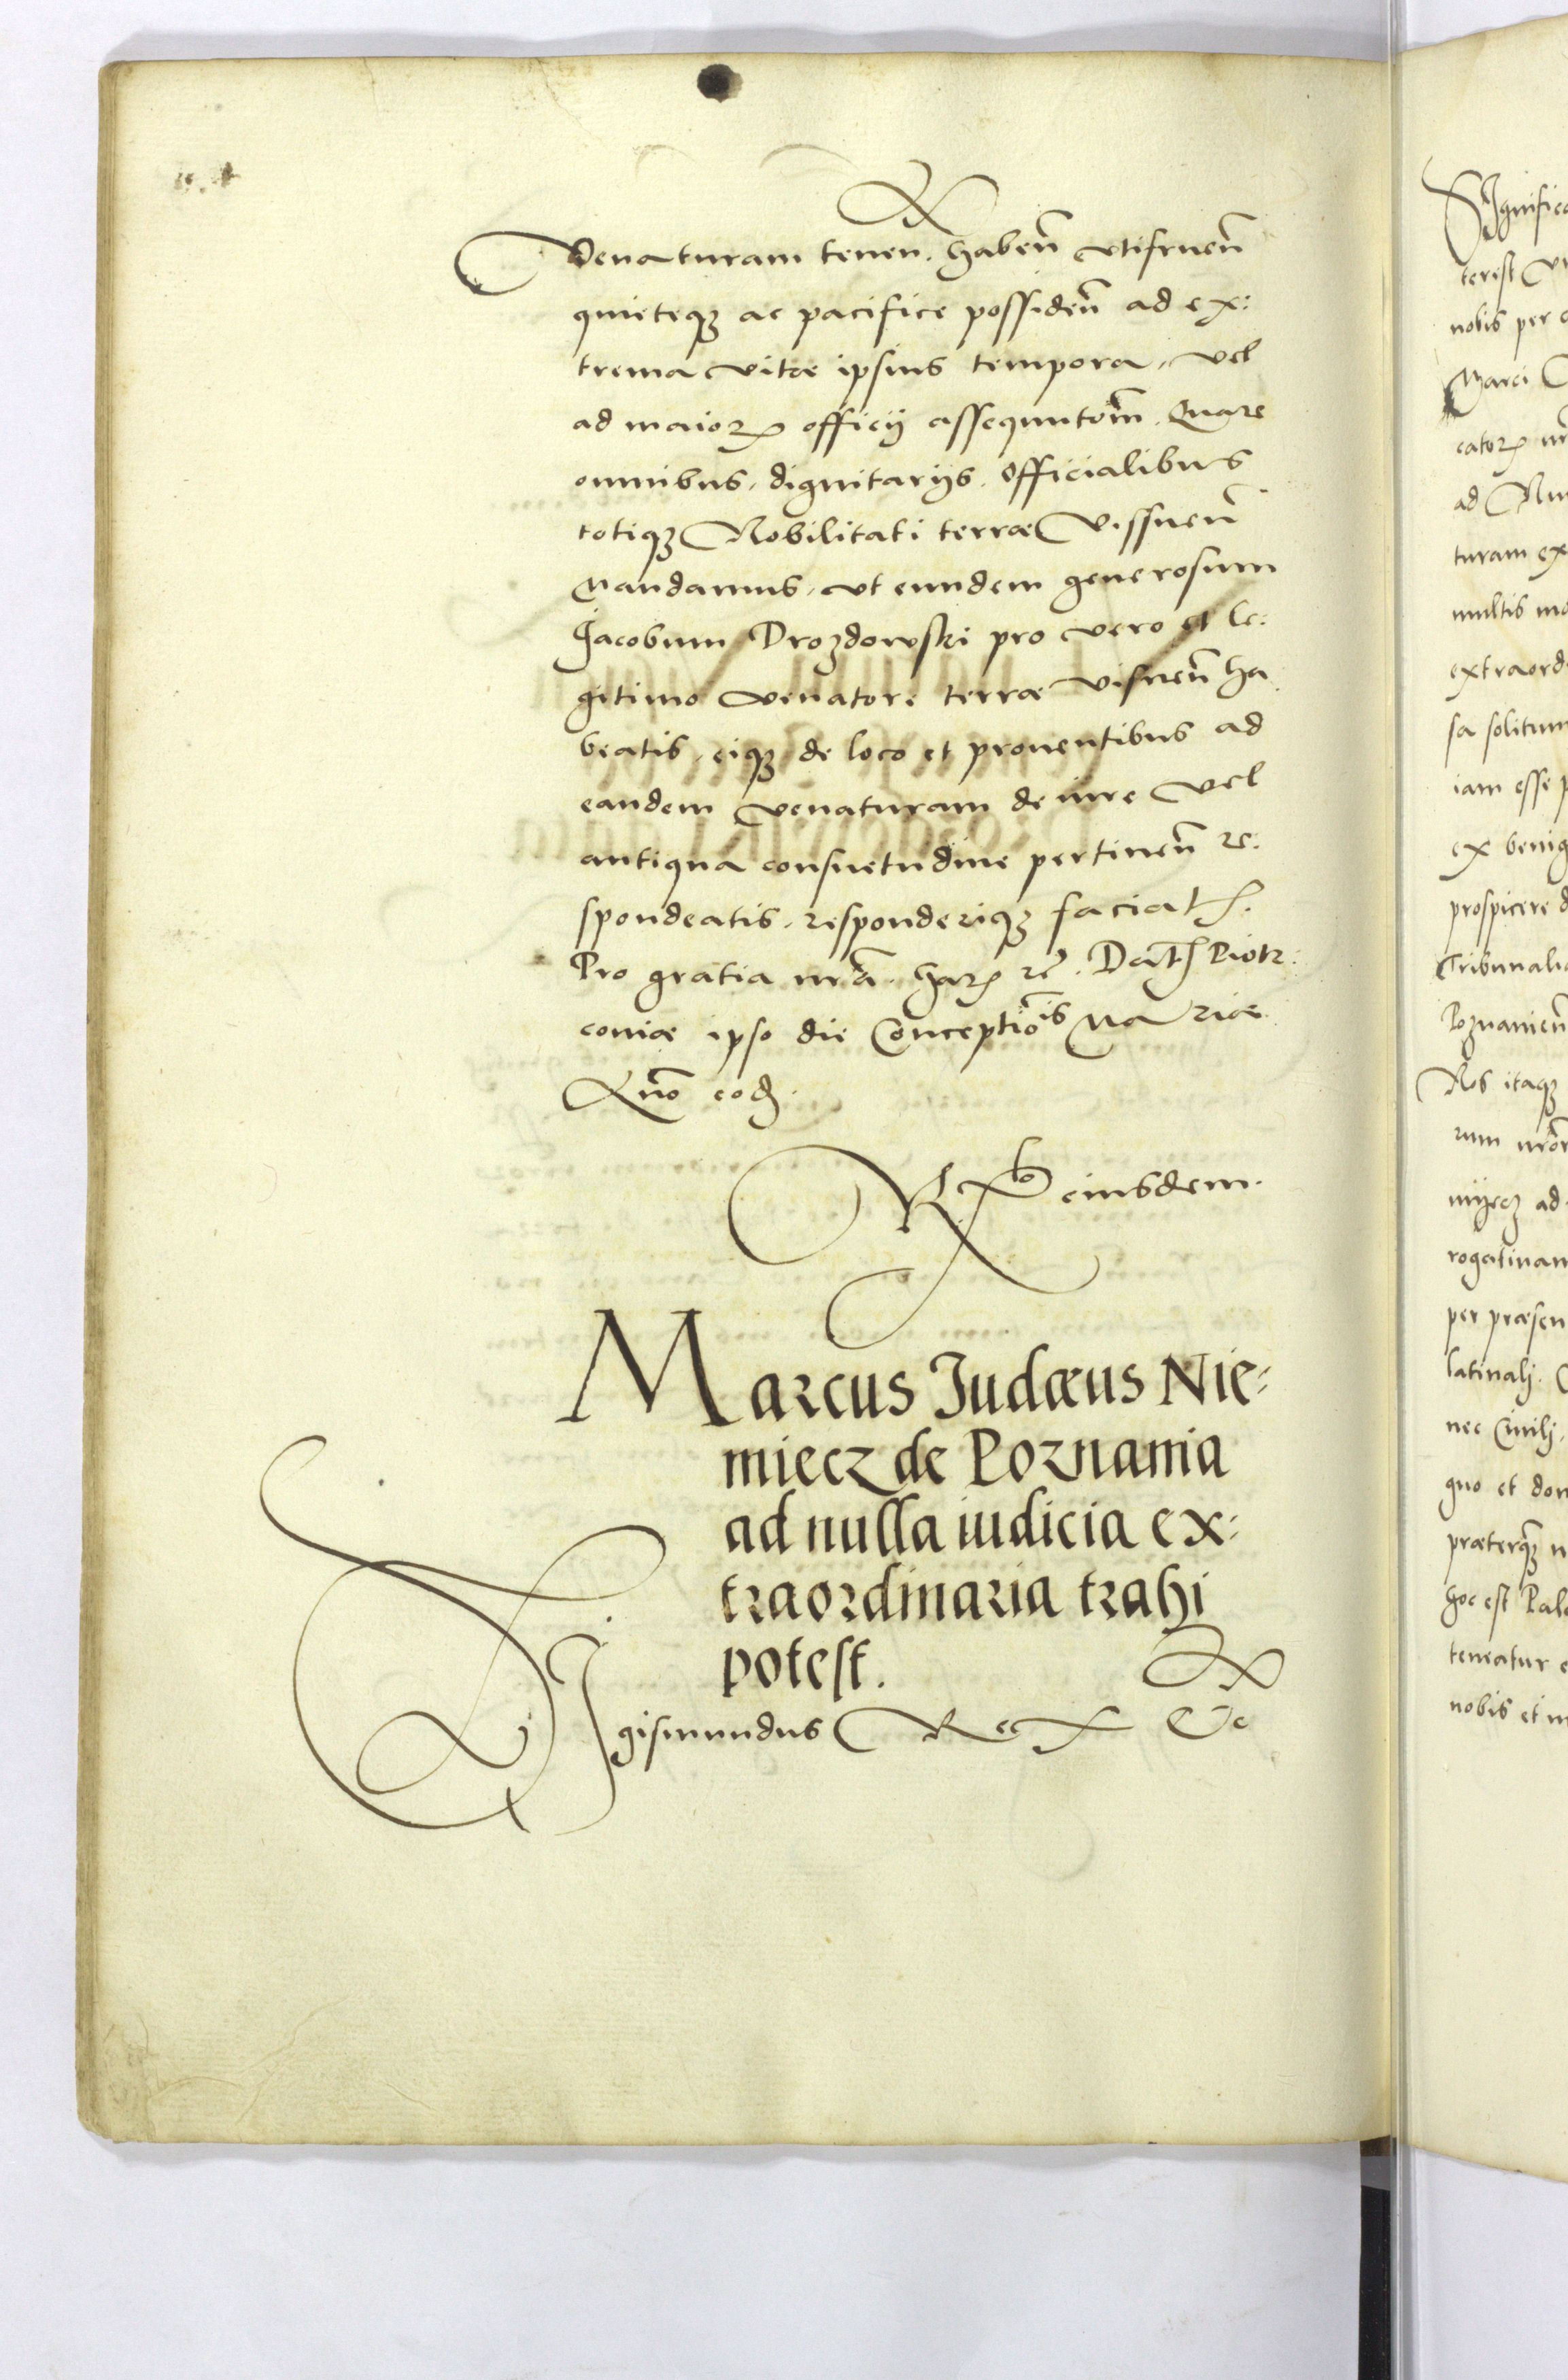 Venaturam tenen. habeñ vtifrueñ
quieteqꝫ ac pacifice possideñ ad ex:
trema vitæ ipsius tempora, vel
ad maioꝝ officij assequutõm. Quare
omnibus, dignitarijs, Officialibus
totiqꝫ Nobilitati terræ Vissneñ
Mandamus, vt eundem generosum
Jacobum Drozdowski pro vero et le:
gitimo venatore terræ Visneñ ha
beatis, eiqꝫ de loco et prouentibus ad
eandem venaturam de iure vel
antiqua consuetudine pertineñ re:
spondeatis, responderiqꝫ faciatꝭ.
Pro gratia nrã. haꝝ rẽ. Datꝭ Piotr:
coniæ ipso die Conceptiõis Mariæ
Anõ eod.
Rõ eiusdem.
Marcus Judæus Nie:
miecz de Poznania
ad nulla iudicia ex:
traordinaria trahi
potest.
Sigismundus Rex &c
Significa
terest
nobis per
Marci
catoꝝ
ad
turam ex
multis
extraord
sa solitum
iam esse
ex benig
prospicere
Tribunali
Poznanieñ
Nos itaqꝫ
rum
ad
rogatiuam
per præsen
latinalj.
nec Ciuilj,
quo et
præterqꝫ
hoc est Pala
teneatur
nobis et